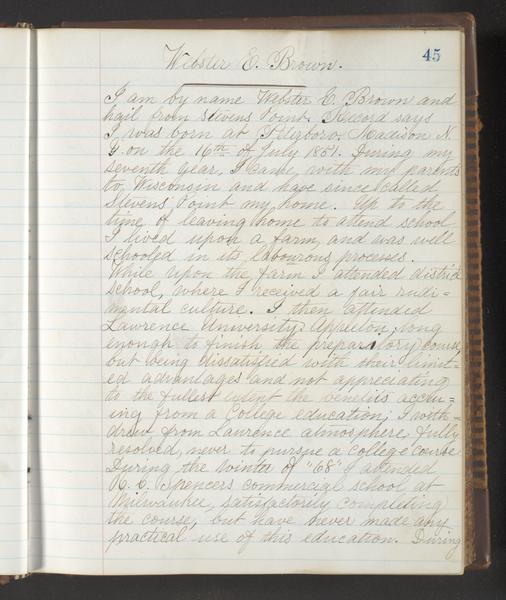 45
Webster E. Brown.
I am by name Webster E. Brown and
hail from Stevens Point. Record says
I was born at Peterboro, Madison N.
Y. on the 16th of July 1851. During my
seventh year, I came, with my parents
to, Wisconsin and have since called
Stevens Point my home. Up to the
time of leaving home to attend school
I lived upon a farm, and was well
schooled in its labourous processes.
While upon the farm I attended district
school, where I received a fair rudi=
mental culture. I then attended
Lawrence University, Appleton, long
enough to finish the preparatory course,
but being dissatisfied with their limit=
ed advantages and not appreciating
to the fullest extent the benefits accru=
ing from a College education; I with=
drew from Lawrence atmosphere, fully
resolved, never to pursue a college course.
During the winter of "68" I attended
R. C. Spencers commercial school at
Milwaukee, satisfactorily completing
the course, but have never made any
practical use of this education. During